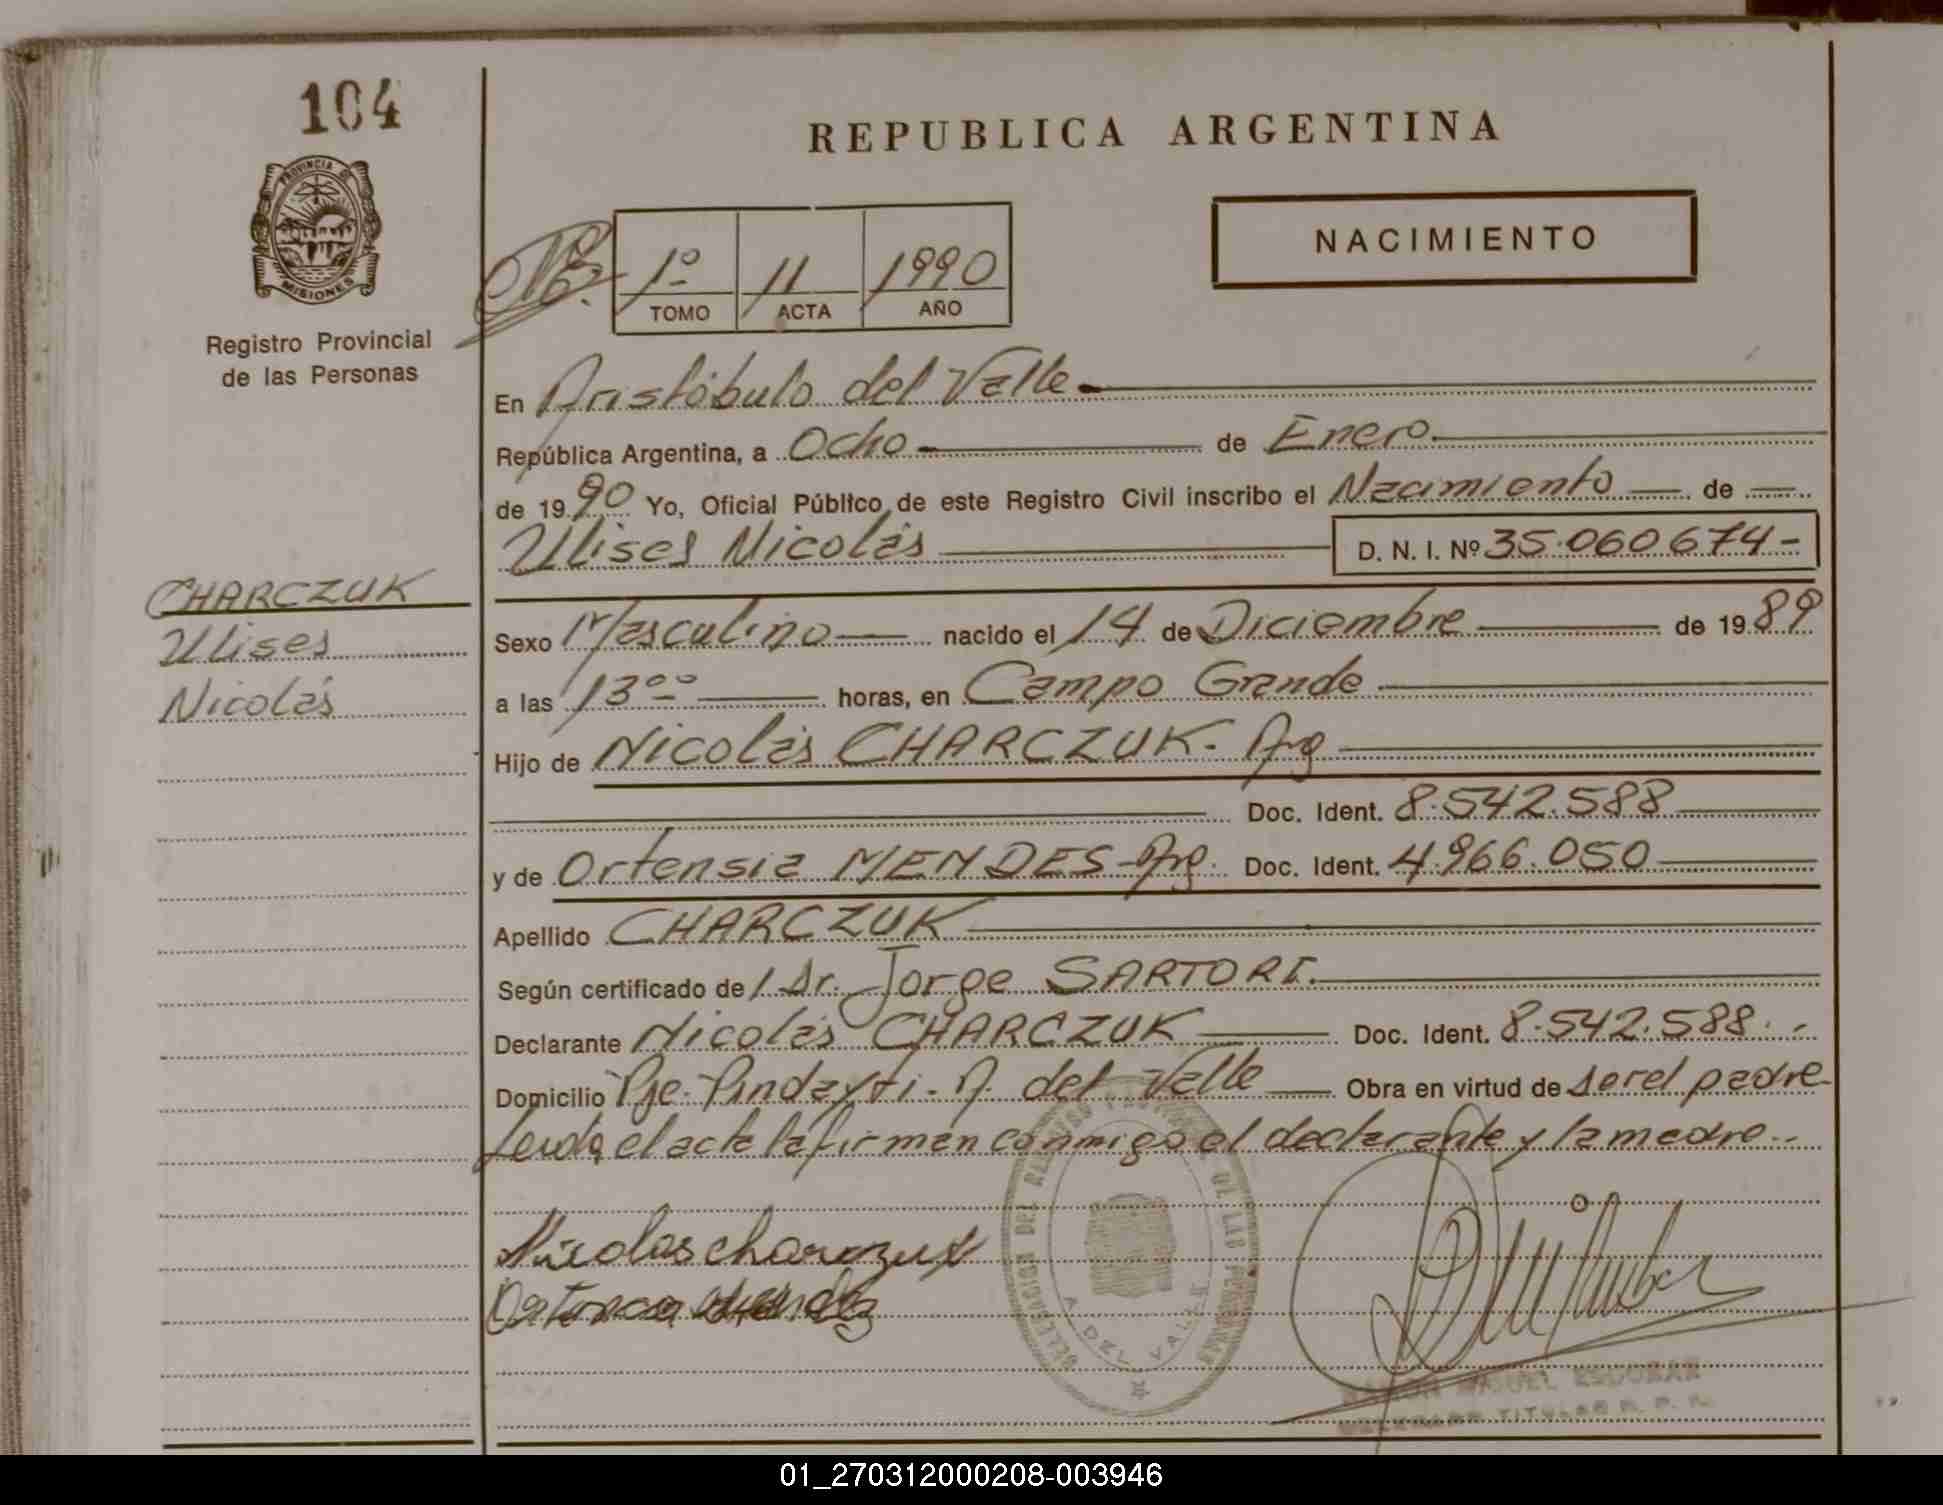 104
PROVINCIA DE
MISIONES
Registro Provincial
de las Personas
CHARCZUK
Ulises
Nicolás
REPUBLICA ARGENTINA
1º 11 1990
TOMO ACTA AÑO
NACIMIENTO
En Aristóbulo del Valle
República Argentina, a Ocho de Enero
de 1990 Yo, Oficial Público de este Registro Civil inscribo el Nacimiento de
Ulises Nicolás D. N. I. Nº 35.060.674-
Sexo Masculino nacido el 14 de Diciembre de 1989
a las 13ºº horas, en Campo Grande
Hijo de Nicolás CHARCZUK. Arg
Doc. Ident. 8.542.588
y de Ortensia MENDES Arg. Doc. Ident. 4.966.050
Apellido CHARCZUK
Según certificado del Dr. Jorge SARTORI.
Declarante Nicolás CHARCZUK Doc. Ident. 8.542.588.-
Domicilio Pje. Pindayti. A. del Valle Obra en virtud de ser el padre
Leida el acta la firman conmigo el declarante y la madre..
Nicolas charczuk
DELEGACION DEL REGISTRO PROVINCIAL DE LAS PERSONAS
A. DEL VALLE
RAMON MIGUEL ESCOBAR
DELEGADO TITULAR R. P. P.
01_270312000208-003946